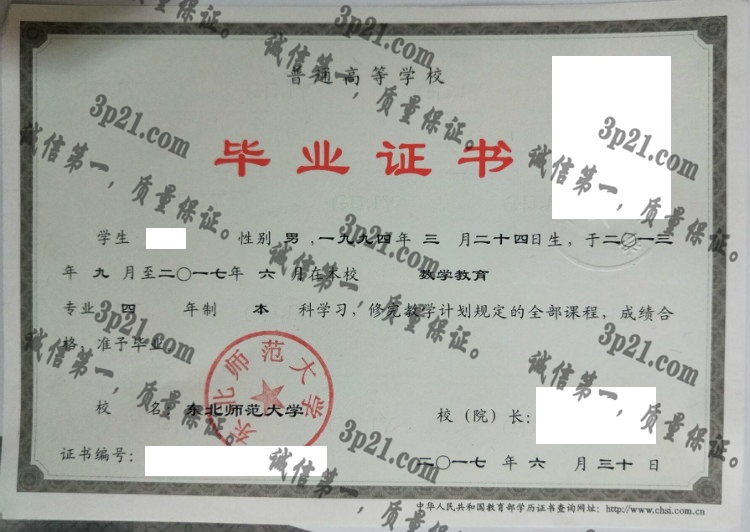 普通高等学校
毕业证书
学生 性别 男 ，一九九四年 三 月二十四日生，于二〇一三
年 九 月至二〇一七年 六 月在本校 数学教育
专业 四 年制 本 科学习，修完教学计划规定的全部课程，成绩合
格，准予毕业。
东北师范大学
校 名 东北师范大学 校（院）长：
证书编号： 二〇一七 年 六 月 三十 日
中华人民共和国教育部学历证书查询网址：http://www.chsi.com.cn
3p21.com
诚信第一，质量保证。
3p21.com
诚信第一，质量保证。
3p21.com
诚信第一，质量保证。
3p21.com
诚信第一，质量保证。
3p21.com
诚信第一，质量保证。
3p21.com
诚信第一，质量保证。
3p21.com
诚信第一，质量保证。